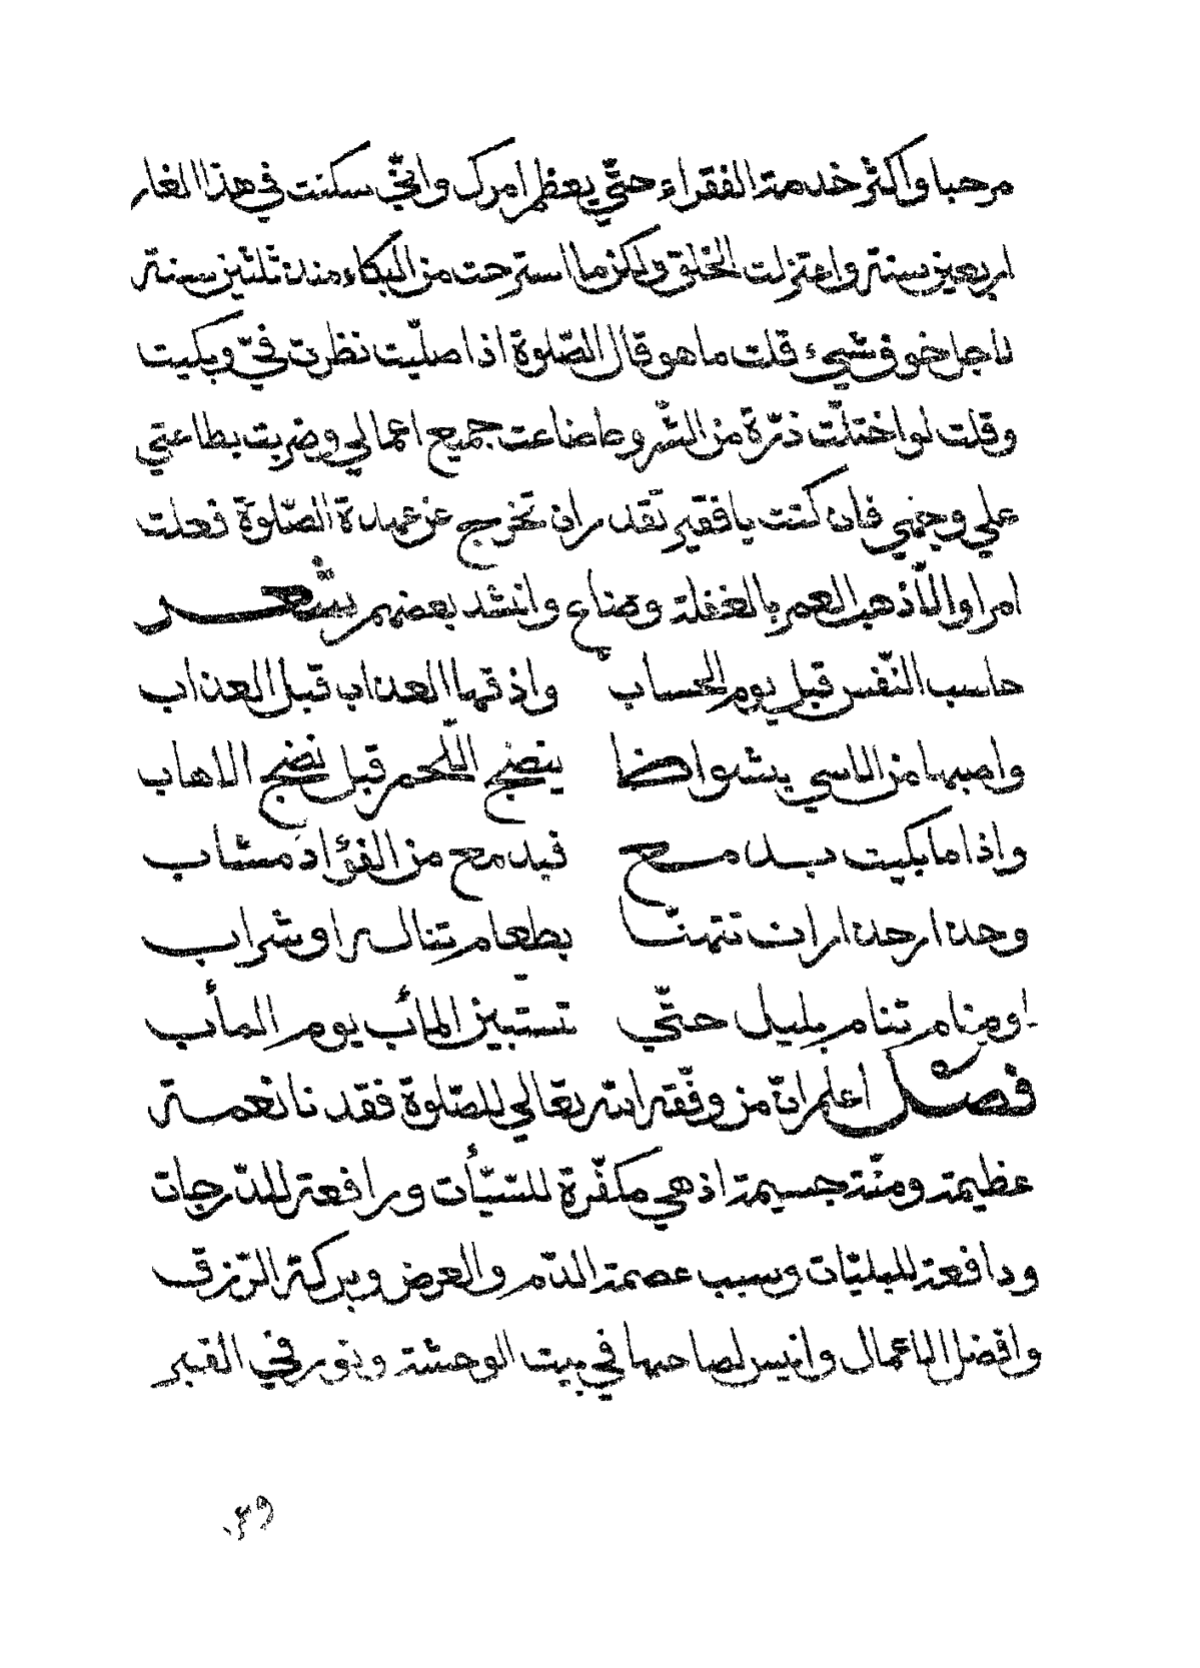 مرحبا واكثر خدمة الفقراء حتّي يعظم امرك وانّي سكنت في هذا الغار
اربعين سنة واعتزلت الخلق ولكن ما استرحت من البكاء منذ ثلثين سنة
لاجل خوف شيء قلت ما هو قال الصّلوة اذا صلّيت نظرت فيّ وبكيت
وقلت لو اختلّت ذرّة من الشّروط ضاعت جميع اعمالي وضربت بطاعتي
علي وجهي فان كنت يا فقير تقدر ان تخرج عن عهدة الصّلوة فعلت
امرا والّا ذهب العمر بالغفلة وضاع وانشد بعضهم شعر
حاسب النّفس قبل يوم الحساب واذقها العذاب قبل العذاب
واصبها من الاسي بشواظ ينضج اللّحم قبل نضج الاهاب
واذا ما بكيت بدمع فبدمع من الفؤاد مشاب
وحذار حذار ان تتهنّا بطعام تناله او شراب
او منام تنام بليل حتّي تستبين المأب يوم المأب
فصل اعلم انّ من وفّقه الله تعالي للصّلوة فقد نال نعمة
عظيمة ومنّة جسيمة اذ هي مكفّرة للسّيّأت ورافعة للدّرجات
ودافعة للبليّات وسبب عصمة الدّم والعرض وبركة الرّزق
وافضل الاعمال وانيس لصاحبها في بيت الوحشة ونور في القبر